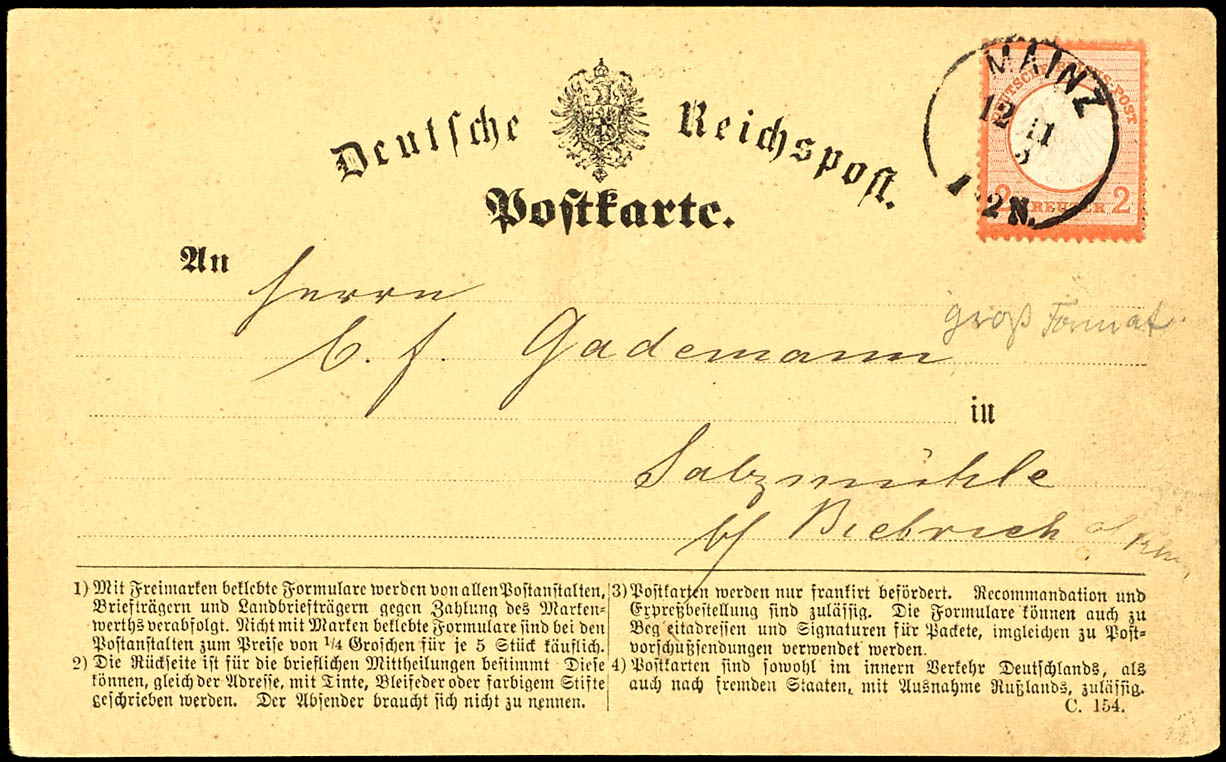 Deutsche Reichspost.
Postkarte.
MAINZ
12
11
1-2N.
DEUTSCHE REICHS-POST
2 KREUZER 2
An Herrn
groß Format.
C. F. Gademann
in
Salzmühle
b/ Biebrich a/ Rhn.
1) Mit Freimarken beklebte Formulare werden von allen Postanstalten,
Briefträgern und Landbriefträgern gegen Zahlung des Marken-
werths verabfolgt. Nicht mit Marken beklebte Formulare sind bei den
Postanstalten zum Preise von 1/4 Groschen für je 5 Stück käuflich.
2) Die Rückseite ist für die brieflichen Mittheilungen bestimmt Diese
können, gleich der Adresse, mit Tinte, Bleifeder oder farbigem Stifte
geschrieben werden. Der Absender braucht sich nicht zu nennen.
3) Postkarten werden nur frankirt befördert. Recommandation und
Expreßbestellung sind zulässig. Die Formulare können auch zu
Beg eitadressen und Signaturen für Packete, imgleichen zu Post-
vorschußsendungen verwendet werden.
4) Postkarten sind sowohl im innern Verkehr Deutschlands, als
auch nach fremden Staaten, mit Ausnahme Rußlands, zulässig.
C. 154.